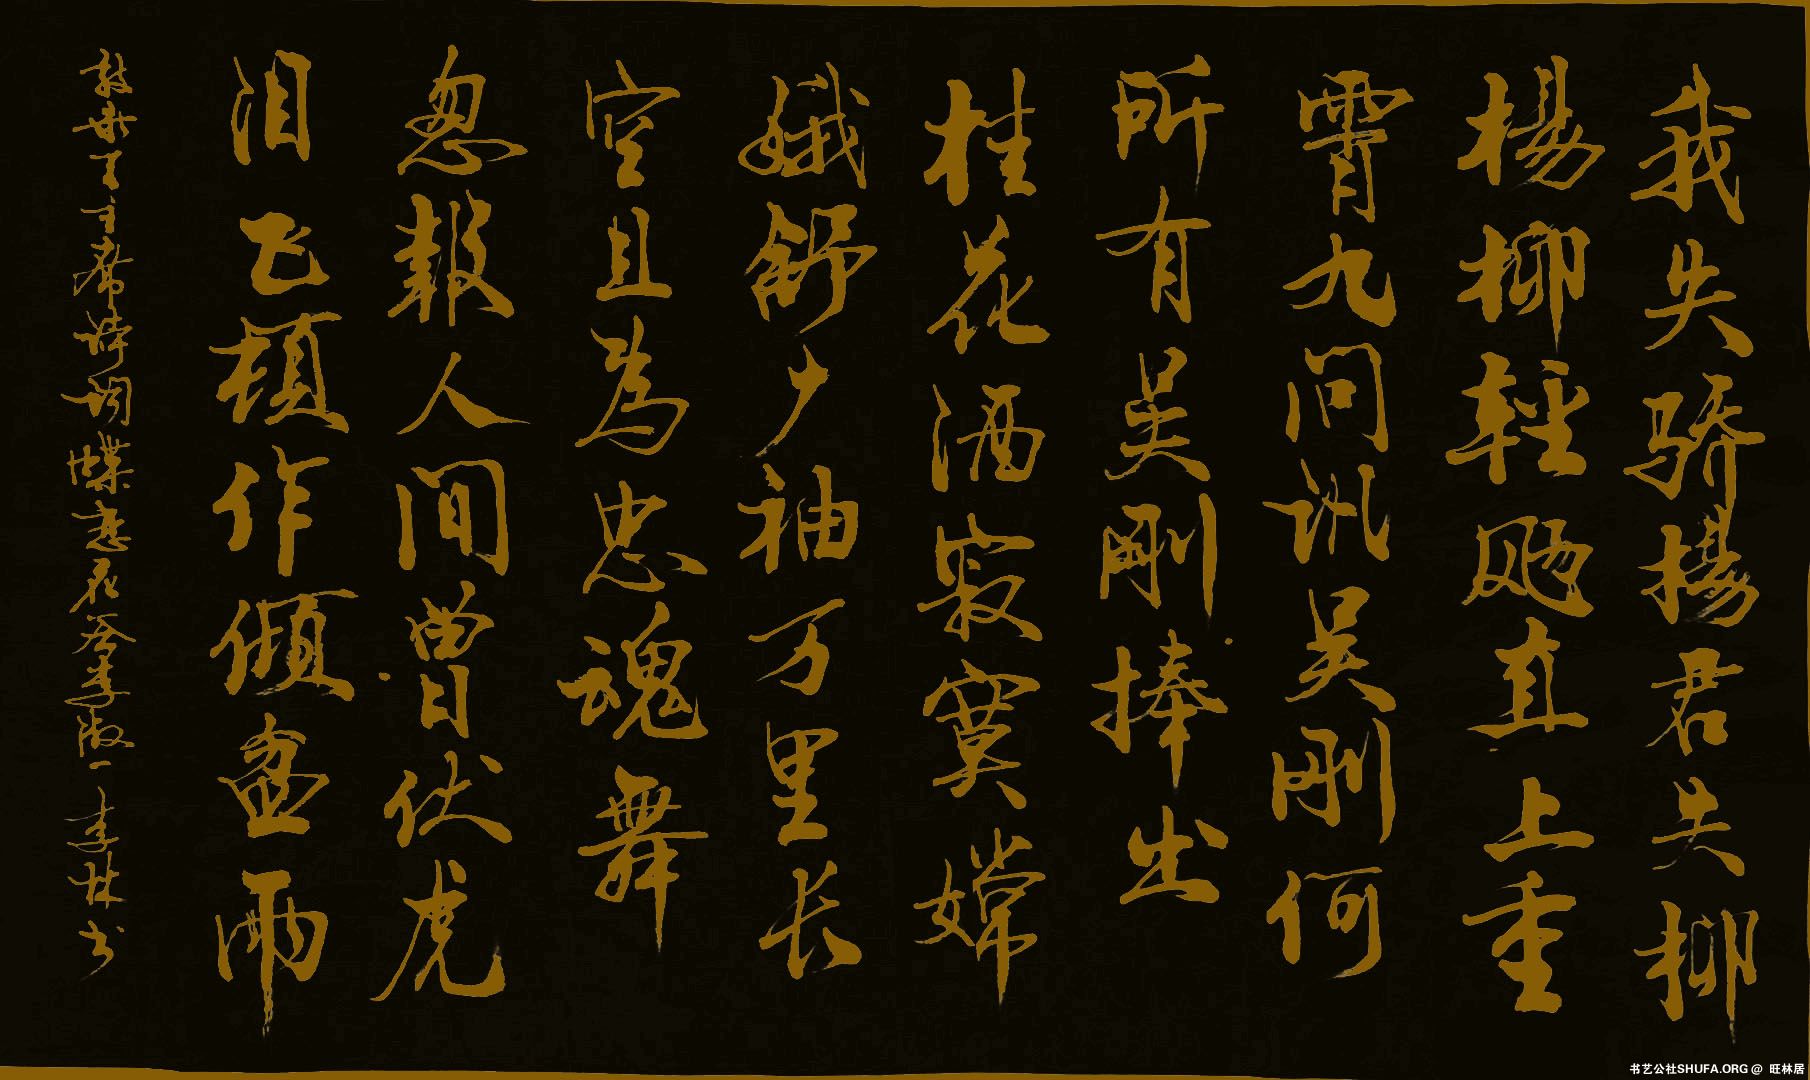 我失骄楊君失柳
楊柳輕颺直上重
霄九问讯吴刚何
所有吴刚捧出
桂花酒寂寞嫦
娥舒广袖万里长
空且为忠魂舞
忽報人间曾伏虎
泪飞顿作倾盆雨
敬录毛主席诗词蝶恋花答李淑一 林书
书艺公社SHUFA.ORG @ 旺林居